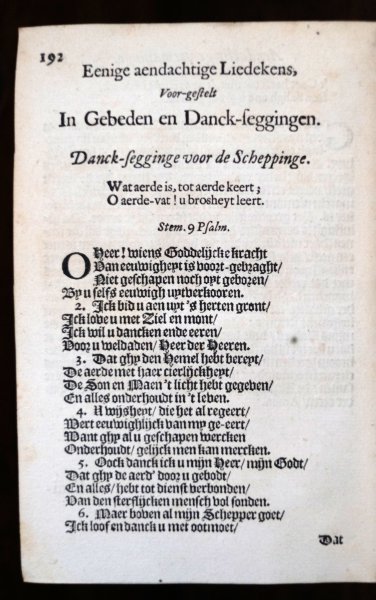 192
Eenige aendachtige Liedekens,
Voor-gestelt
In Gebeden en Danck-seggingen.
Danck-segginge voor de Scheppinge.
Wat aerde is, tot aerde keert;
O aerde-vat! u brosheyt leert.
Stem. 9 Psalm.
O Heer! wiens Goddelijcke kracht
Van eeuwigheyt is voort-gebraght/
Niet geschapen noch oyt geboren/
By u selfs eeuwigh uytverkooren.
2. Ick bid u aen uyt 's herten gront/
Ick love u met Ziel en mont/
Ick wil u dancken ende eeren/
Voor u weldaden/ Heer der Heeren.
3. Dat ghy den Hemel hebt bereyt/
De aerde met haer cierlijckheyt/
De Son en Maen 't licht hebt gegeven/
En alles onderhoudt in 't leven.
4. U wijsheyt/ die het al regeert/
Wert eeuwighlijck van my ge-eert/
Want ghy al u geschapen wercken
Onderhoudt/ gelijck men kan mercken.
5. Oock danck ick u mijn Heer/ mijn Godt/
Dat ghy de aerd' door u gebodt/
En alles/ hebt tot dienst verbonden/
Van den sterflijcken mensch vol sonden.
6. Maer boven al mijn Schepper goet/
Ick loof en danck u met ootmoet/
Dat